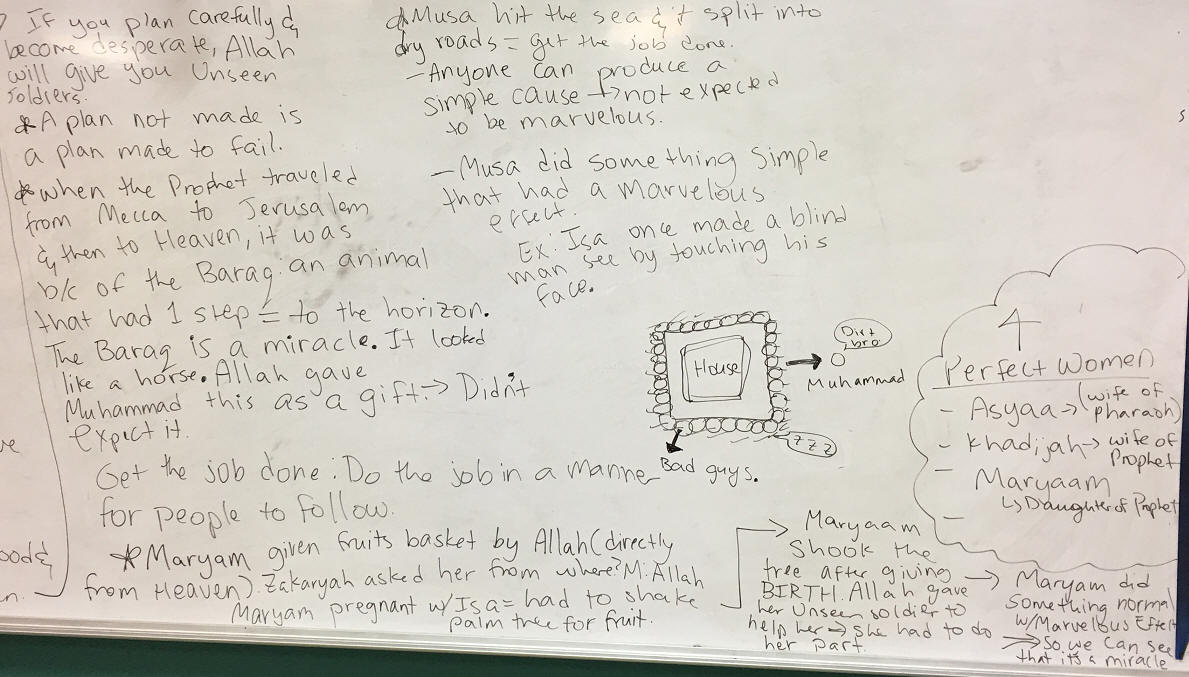 If you plan carefully &
become desperate, Allah
will give you Unseen
soldiers.
* A plan not made is
a plan made to fail.
* when the Prophet traveled
from Mecca to Jerusalem
& then to Heaven, it was
b/c of the Baraq: an animal
that had 1 step = to the horizon.
The Baraq is a miracle. It looked
like a horse. Allah gave
Muhammad this as a gift. → Didn't
expect it.
Get the job done: Do the job in a manner
for people to follow.
* Maryam given fruits basket by Allah (directly
from Heaven). Zakaryah asked her from where? M: Allah
Maryam pregnant w/ Isa = had to shake
palm tree for fruit.
Musa hit the sea & it split into
dry roads = get the job done.
- Anyone can produce a
simple cause → not expected
to be marvelous.
- Musa did something simple
that had a marvelous
effect.
Ex: Isa once made a blind
man see by touching his
face.
House
Dirt
bro
Muhammad
zzz
Bad guys.
4
Perfect Women
- Asyaa → (wife of
pharaoh)
- Khadijah → wife of
Prophet
- Maryaam
↳ Daughter of Prophet
-
Maryaam
Shook the
tree after giving
BIRTH. Allah gave
her Unseen soldier to
help her → she had to do
her part.
→ Maryam did
something normal
w/ Marvelous Effect
⇒ So we can see
that its a miracle